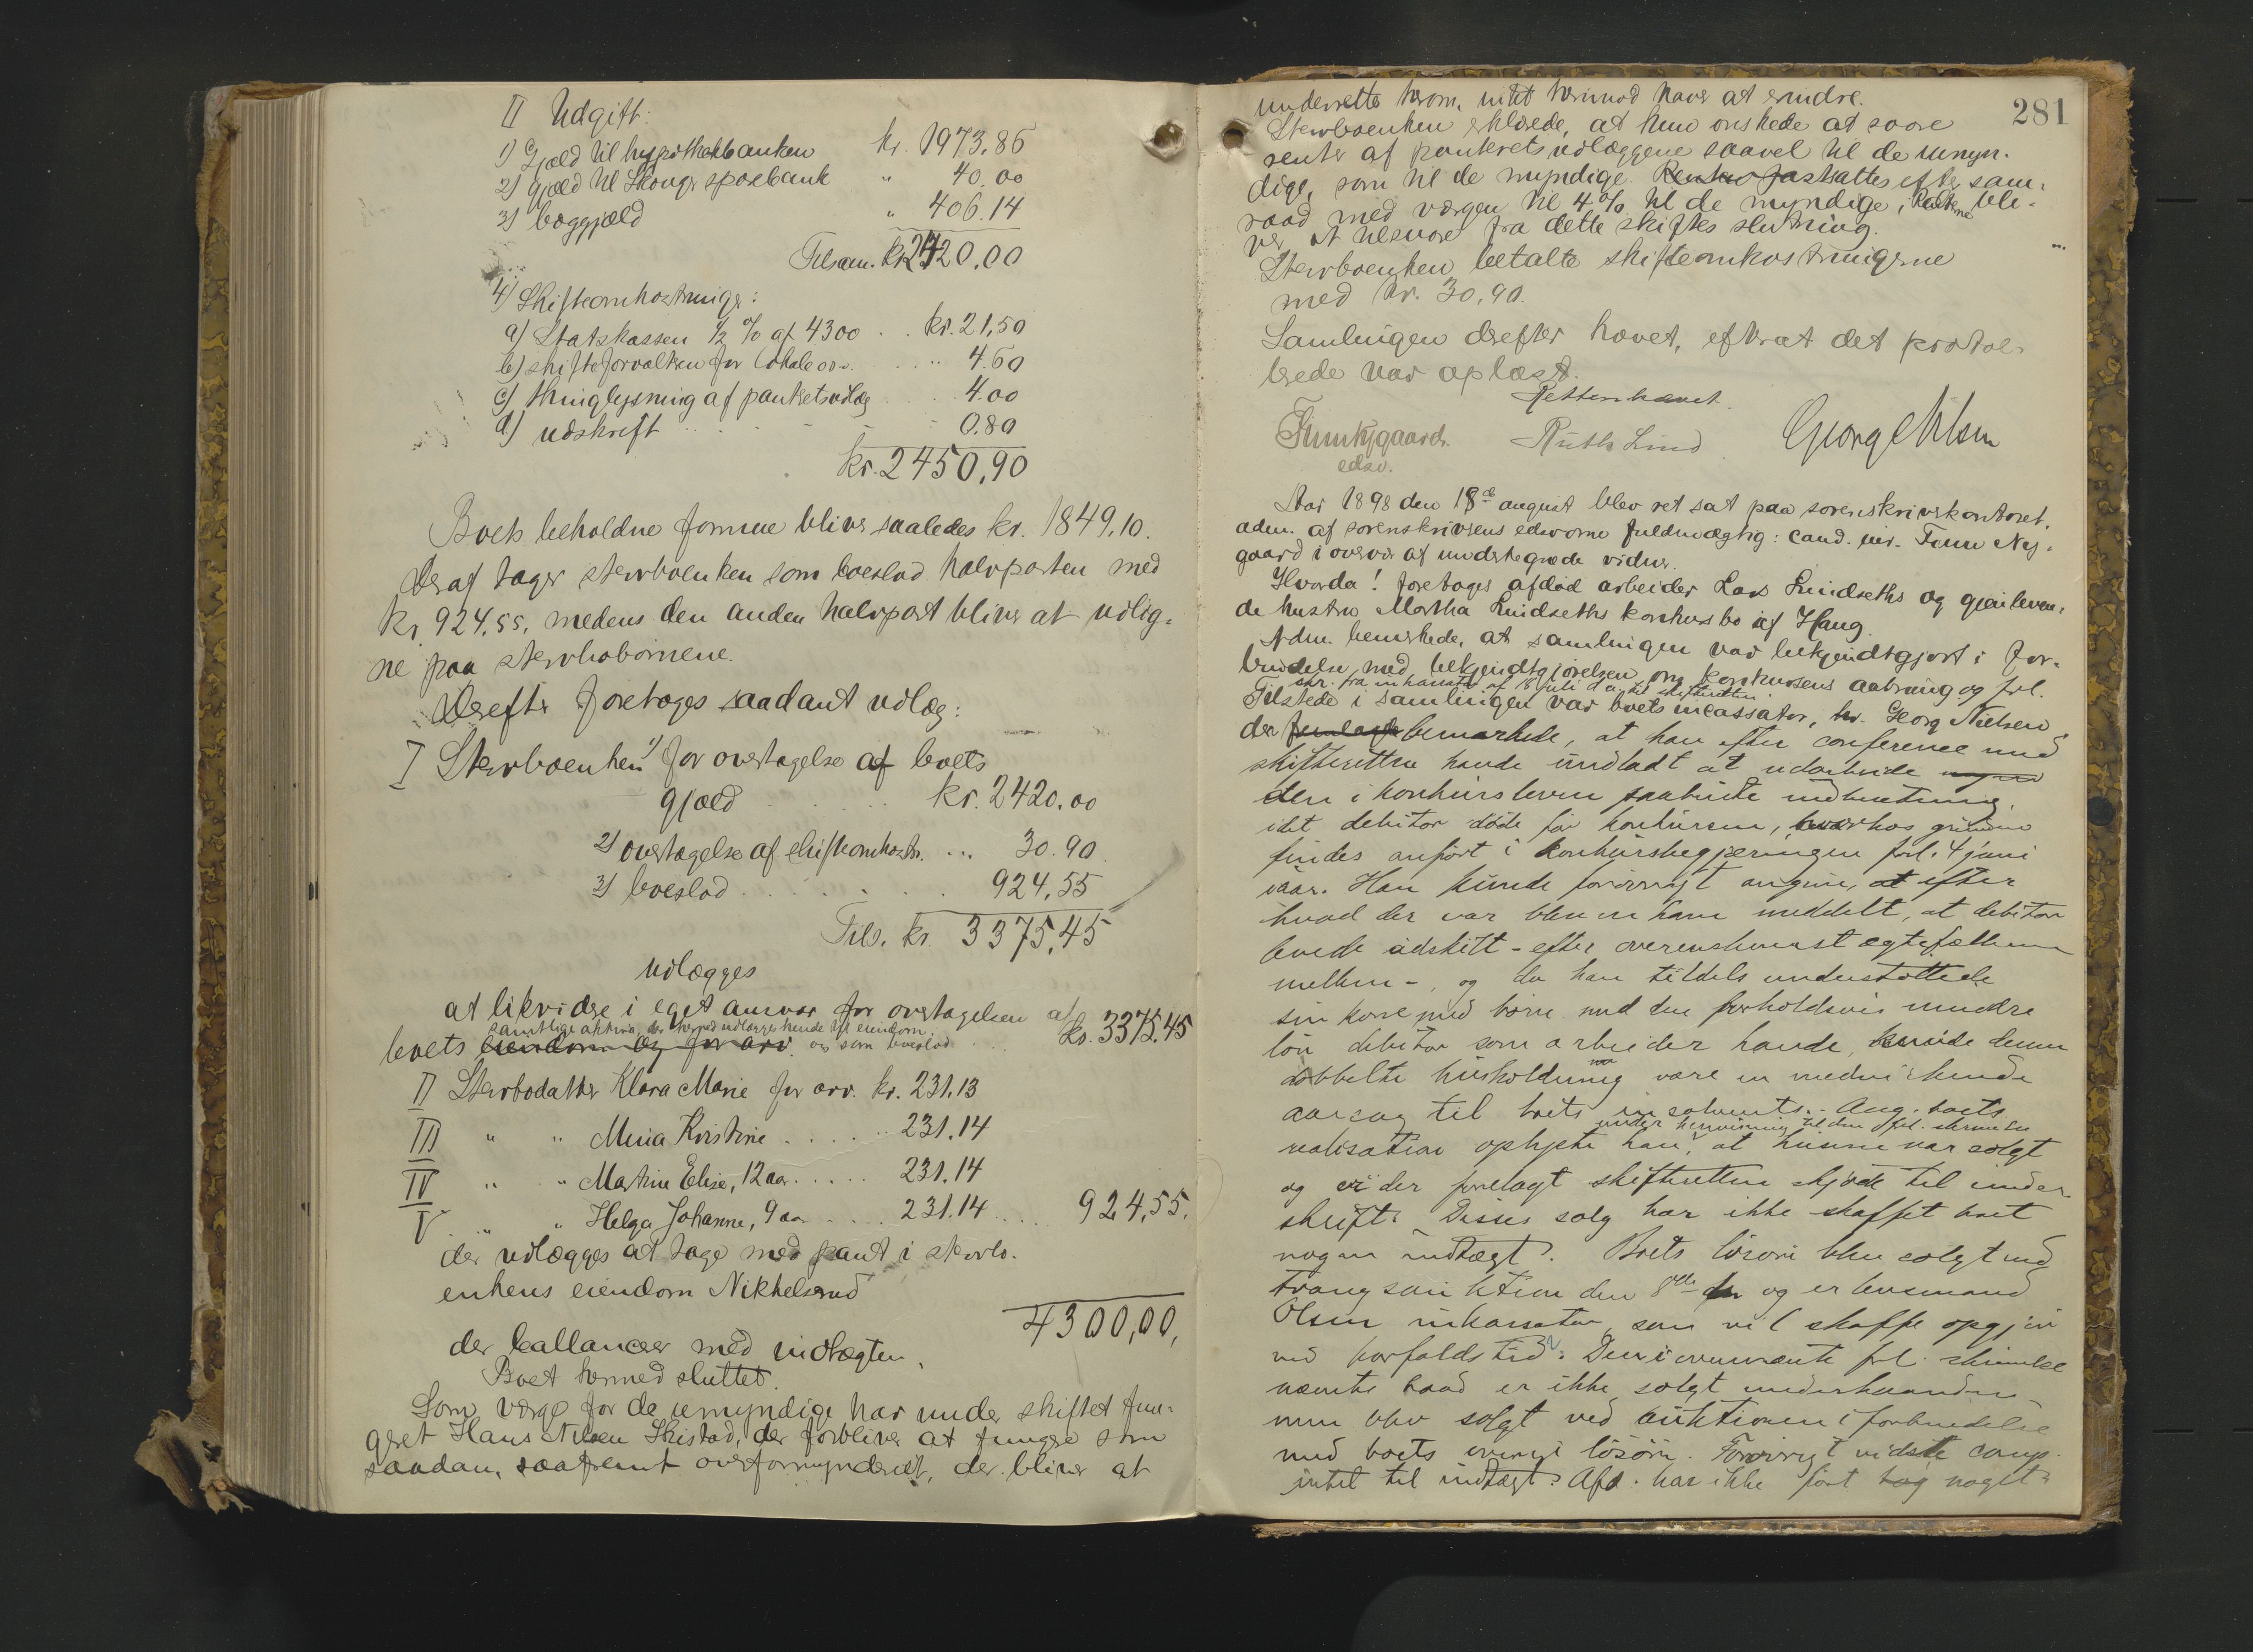 II Udgift:
1) Gjæld til hypothekbanken kr. 1973.86
2) Gjæld til Skougr sparebank " 40.00
3) boggjæld " 406.14
Tilsam. kr. 2420.00
4) Skifteomkostninger:
a) Statskassen ½ % af 4300 .. kr. 21,50
b) skifteforvalteren for lokale ... 4.60
c) thinglysning af panteretsudlæg 4.00
d) udskrift 0.80
kr. 2450,90
Boets beholdne formue bliver saaledes kr. 1849,10.
Deraf tager stervboenken som boeslod halvparten med
kr. 924,55, medens den anden halvpart bliver at udlig-
ne paa stervbobørnene.
Derefter foretoges saadant udlæg:
I Stervboenken 1) for overtagelse af boets
gjæld kr. 2420.00
2) overtagelse af skifteomkostn. ... 30.90
3) boeslod 924,55
Tils. kr. 3375,45
udlægges
at likvidere i eget ansvar for overtagelsen af
samtlige aktiva, der hermed udlægges hende til eiendom
boets eiendom og for arv. og som boeslod kr. 3375.45
II Stervbodatter Klara Marie for arv. kr. 231.13
III " " Mina Kristine 231.14
IV " " Martine Elise, 12 aar 231.14
V " " Helga Johanne, 9 aar 231.14 924,55.
der udlægges at tage med pant i stervbo-
enkens eiendom Nikkelsrud
4300,00,
der ballancerer med indtægten.
Boet hermed sluttet.
Som værge for de umyndige har under skiftet fun-
geret Hans Nilsen Skistad, der forbliver at fungere som
saadan, saafremt overformynderiet, der bliver at
281
underrette herom, intet herimod haver at erindre.
Stervboenken erklærede, at hun ønskede at svare
renter af panteretsudlæggene saavel til de umyn-
dige, som til de myndige. Renten fastsattes efter sam-
raad med værgen til 4 % til de myndige, Renterne bli-
ver at tilsvare fra dette skiftes slutning.
Stervboenken betalte skifteomkostningerne
med kr. 30,90.
Samlingen derefter hævet, efterat det protokol-
lerede var oplæst.
Retten hævet.
Finn Nygaard Ruth Lind Georg Nilsen
edsv.
Aar 1898 den 18de august blev ret sat paa sorenskriverkontoret,
adm. af sorenskriverens edsvorne fuldmægtig: cand. jur. Finn Ny-
gaard i overvær af undertegnede vidner.
Hvorda! foretoges afdød arbeider Lars Lindseths og gjenleven-
de hustru Martha Lindseths konkursbo af Haug.
Adm. bemerkede, at samlingen var bekjendtgjort i for-
bindelse med bekjendtgjørelsen om konkursens aabning og frl.
skr. fra inkassator af 18 juli d. a. til skifteretten.
Tilstede i samlingen var boets incassator, hr. Georg Nielsen
der bemærkede, at han efter conference med
skifteretten havde undladt at udarbeide
den i konkursloven paabudte indberetning,
idet debitor døde før konkursen, hvorhos grunden
findes anført i konkursbegjæringen frl. 4 juni
iaar. Han kunde forøvrigt angive, at efter
hvad der var bleven ham meddelt, at debitor
levede adskilt - efter overenskomst ægtefællerne
mellem -, og da han tildels understøttede
sin kone med børn med den forholdsvis mindre
løn debitor som arbeider havde, kunde denne
dobbelte husholdning være en medvirkende
aarsag til boets insolvents. - Ang. boets
under henvisning til den frl. skrivelse
realisation oplyste han, at husene var solgt
og vi der forelagt skifteretten skjøde til under-
skrift. Disses salg har ikke skaffet boet
nogen indtægt. Boets løsøre blev solgt ved
tvangsauktion den 8de og er lensmand
Olsen inkassator, som vil skaffe opgjør
ved forfaldstid. Den i ovennævnte frl. skrivelse
nævnte baad er ikke solgt underhaanden
men blev solgt ved auktionen i forbindelse
med boets øvrige løsøre. Forøvrigt vidste comp.
intet til indtægt. Afd. har ikke ført noget